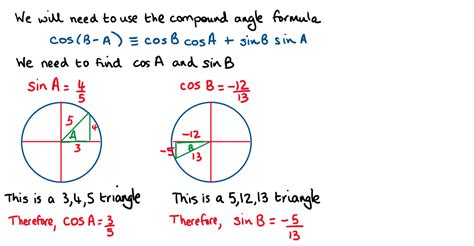 We will need to use the compound angle formula
cos(B-A) ≡ cosB cosA + sinB sinA
We need to find cosA and sinB
sinA = 4/5
cosB = -12/13
5
4
A
3
-12
-5
B
13
This is a 3,4,5 triangle
This is a 5,12,13 triangle
Therefore, cosA = 3/5
Therefore, sinB = -5/13